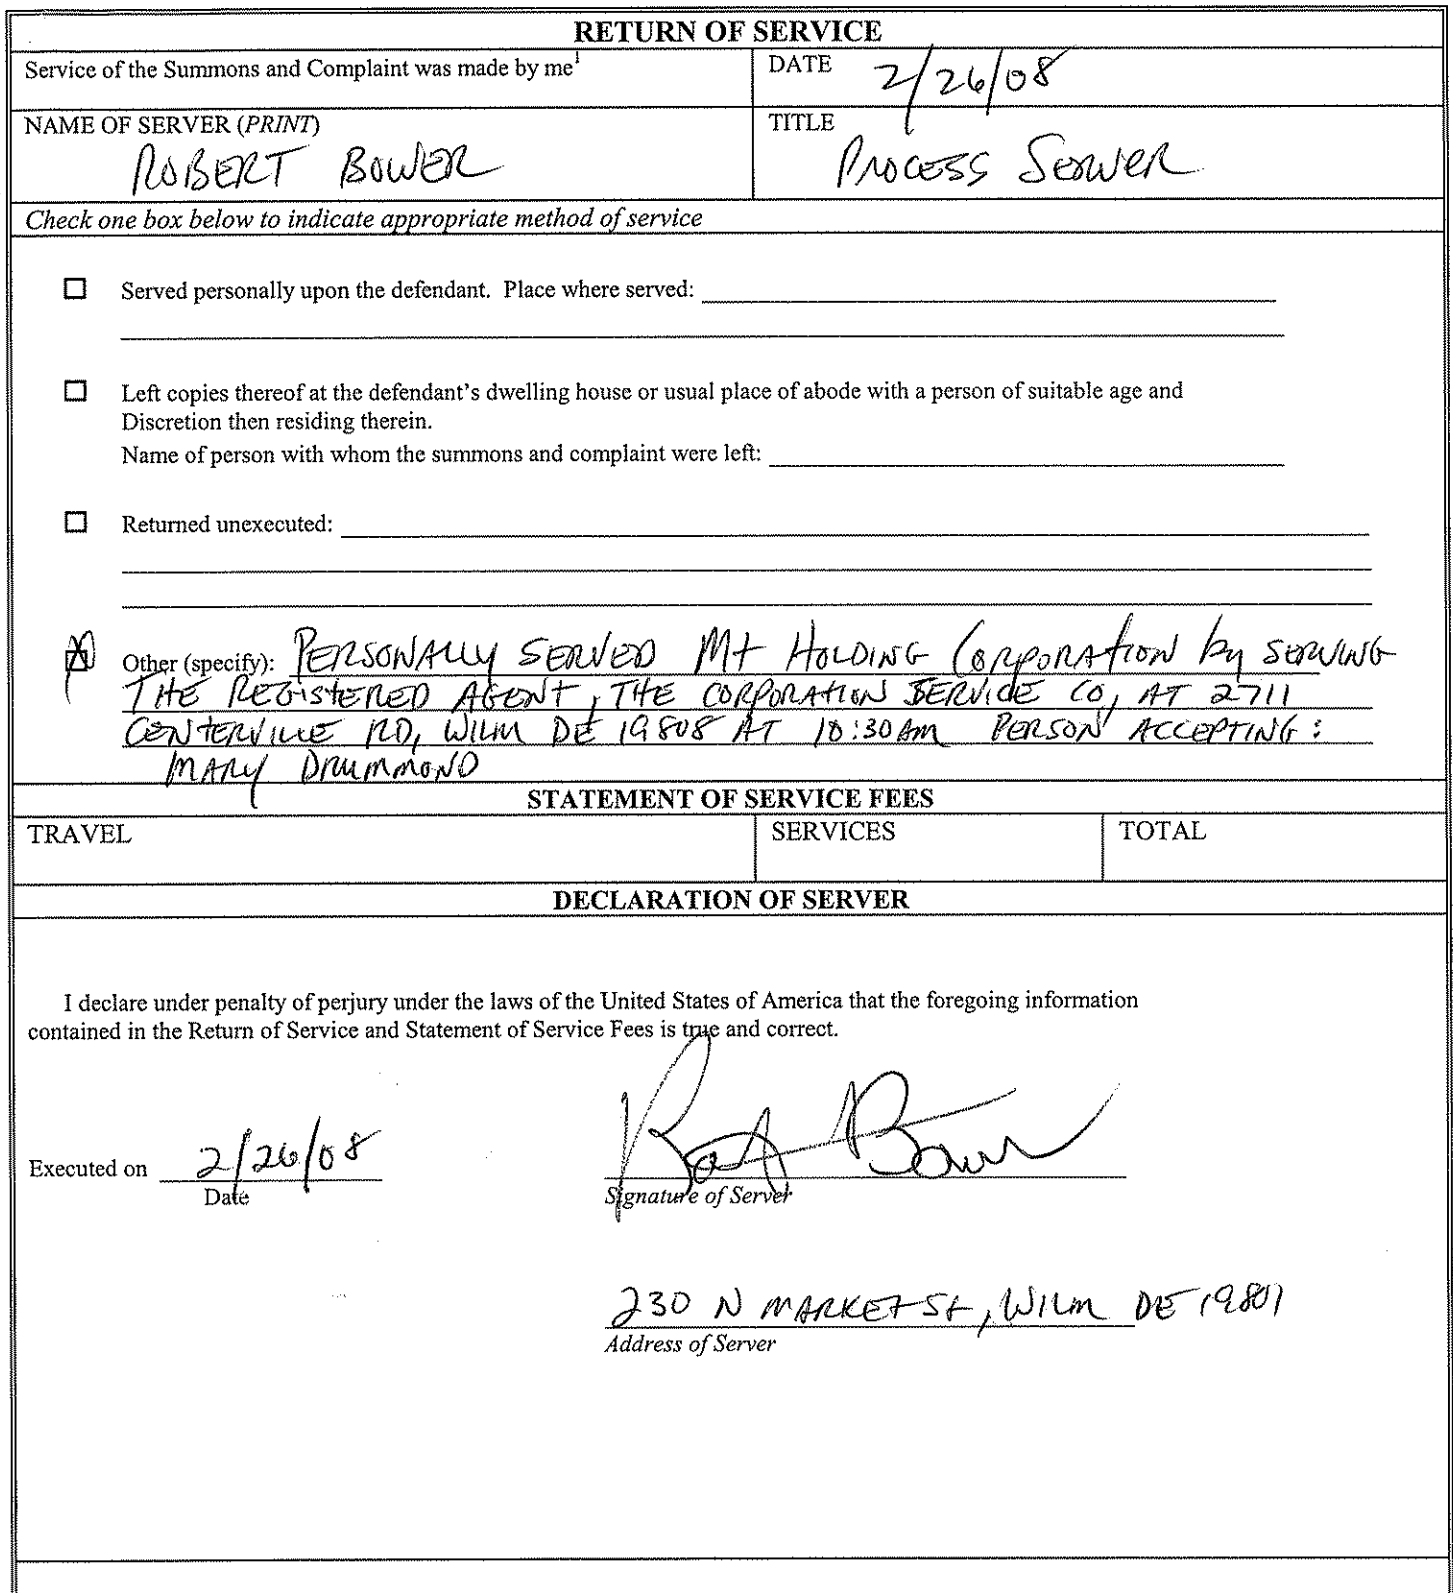 RETURN OF SERVICE
Service of the Summons and Complaint was made by me1
DATE 2/26/08
NAME OF SERVER (PRINT)
ROBERT BOWER
TITLE
PROCESS SERVER
Check one box below to indicate appropriate method of service
☐ Served personally upon the defendant. Place where served:
☐ Left copies thereof at the defendant's dwelling house or usual place of abode with a person of suitable age and
Discretion then residing therein.
Name of person with whom the summons and complaint were left:
☐ Returned unexecuted:
☒ Other (specify): PERSONALLY SERVED Mt HOLDING CORPORATION by SERVING
THE REGISTERED AGENT, THE CORPORATION SERVICE CO, AT 2711
CENTERVILLE RD, WILM DE 19808 AT 10:30 AM PERSON ACCEPTING:
MARY DRUMMOND
STATEMENT OF SERVICE FEES
TRAVEL
SERVICES
TOTAL
DECLARATION OF SERVER
I declare under penalty of perjury under the laws of the United States of America that the foregoing information
contained in the Return of Service and Statement of Service Fees is true and correct.
Executed on 2/26/08
Date
Signature of Server
230 N MARKET St, WILM DE 19801
Address of Server